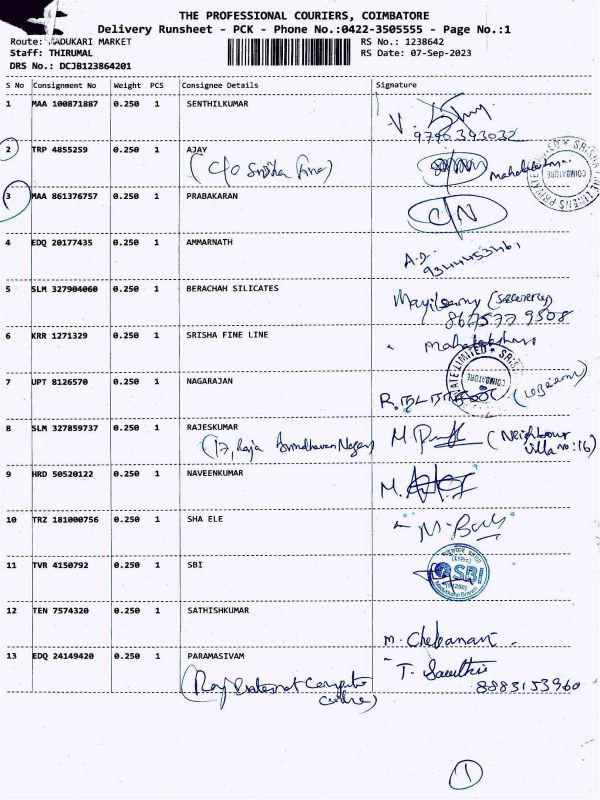 THE PROFESSIONAL COURIERS, COIMBATORE
Delivery Runsheet - PCK - Phone No.:0422-3505555 - Page No.:1
Route: MADUKARI MARKET RS No.: 1238642
Staff: THIRUMAL RS Date: 07-Sep-2023
DRS No.: DCJB123864201
S No Consignment No Weight PCS Consignee Details Signature
1 MAA 100871887 0.250 1 SENTHILKUMAR
2 TRP 4855259 0.250 1 AJAY
(C/O
3 MAA 861376757 0.250 1 PRABAKARAN
C/N
4 EDQ 20177435 0.250 1 AMMARNATH
A.D.
5 SLM 327904060 0.250 1 BERACHAH SILICATES
(Security)
8675779508
6 KRR 1271329 0.250 1 SRISHA FINE LINE
COIMBATORE
7 UPT 8126570 0.250 1 NAGARAJAN
8 SLM 327859737 0.250 1 RAJESKUMAR
(17, Raja Nagar) (Neighbour
villa no: 16)
9 HRD 50520122 0.250 1 NAVEENKUMAR
10 TRZ 181000756 0.250 1 SHA ELE
11 TVR 4150792 0.250 1 SBI
SBI
12 TEN 7574320 0.250 1 SATHISHKUMAR
13 EDQ 24149420 0.250 1 PARAMASIVAM
8883153960
1